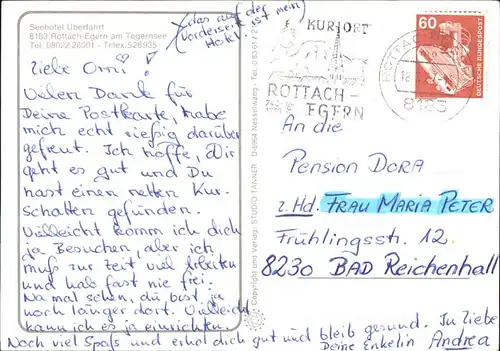 Seehotel Überfahrt
8183 Rottach-Egern am Tegernsee
Tel. 08022-26001 - Telex: 526935
das auf der
Vorderseite ist mein
Hotel!
Liebe Omi!
Vielen Dank für
Deine Postkarte, habe
mich echt riesig darüber
gefreut. Ich hoffe, Dir
geht es gut und Du
hast einen netten Kur-
schatten gefunden.
Vielleicht komm ich dich
ja Besuchen, aber ich
muß zur Zeit viel Arbeiten
und hab fast nie frei.
Na mal sehen, du bist ja
noch länger dort. Vielleicht
kann ich es ja einrichten.
Noch viel Spaß und erhol dich gut und bleib gesund. In Liebe
Deine Enkelin Andrea
Copyright und Verlag: STUDIO TANNER
KURORT
ROTTACH-
EGERN
60
DEUTSCHE BUNDESPOST
ROTTACH
8183
An die
Pension DORA
z. Hd. FRAU MARIA PETER
Frühlingsstr. 12
8230 BAD Reichenhall